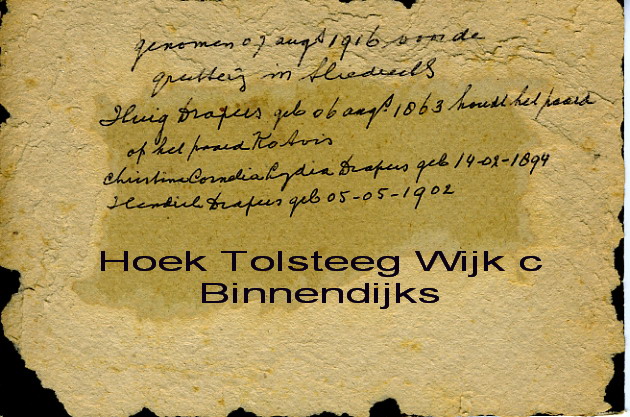 genomen 07 augs 1916 voor de
in Sliedrecht
Huig Drapers geb 06 augs 1863 houdt het paard
op het paard Ko Avis
Christina Cornelia Lydia Drapers geb 14-02-1894
Hendrik Drapers geb 05-05-1902
Hoek Tolsteeg Wijk c
Binnendijks